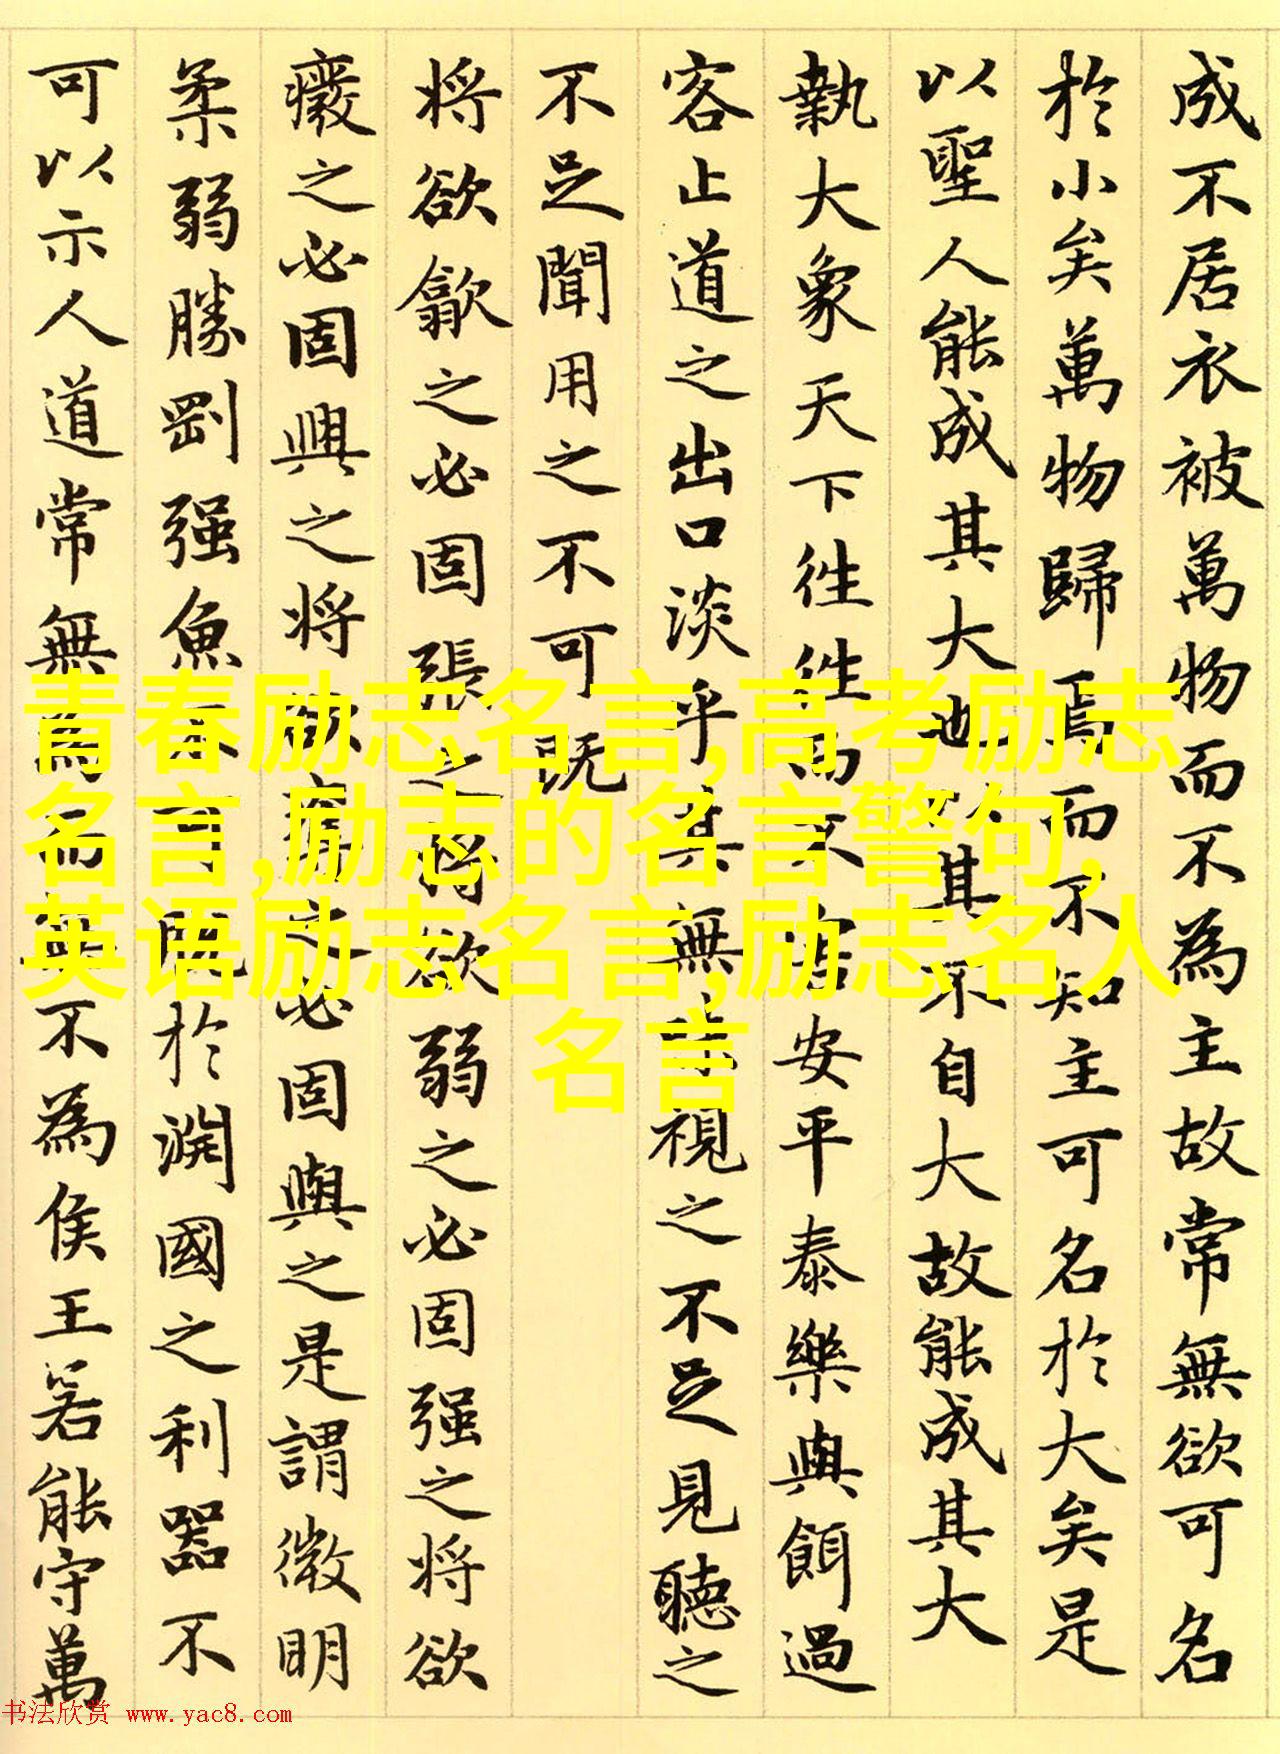 成不居衣被萬物而不為主故常無欲可名
於小矣萬物歸焉而不知主可名於大矣是
以聖人能成其大也以其不自大故能成其大
執大象天下徃徃而不害安平泰樂與餌過
客止道之出口淡乎其無味視之不足見聽之
不足聞用之不可既
将欲歙之必固張之将欲弱之必固强之将欲
癈之必固興之将欲奪之必固與之是謂微明
柔弱勝剛强魚不可脱於淵國之利器不
可以示人道常無為而無不為侯王若能守萬
青春励志名言,高考励志
名言,励志的名言警句,
英语励志名言,励志名人
名言
书法欣赏 www.yac8.com